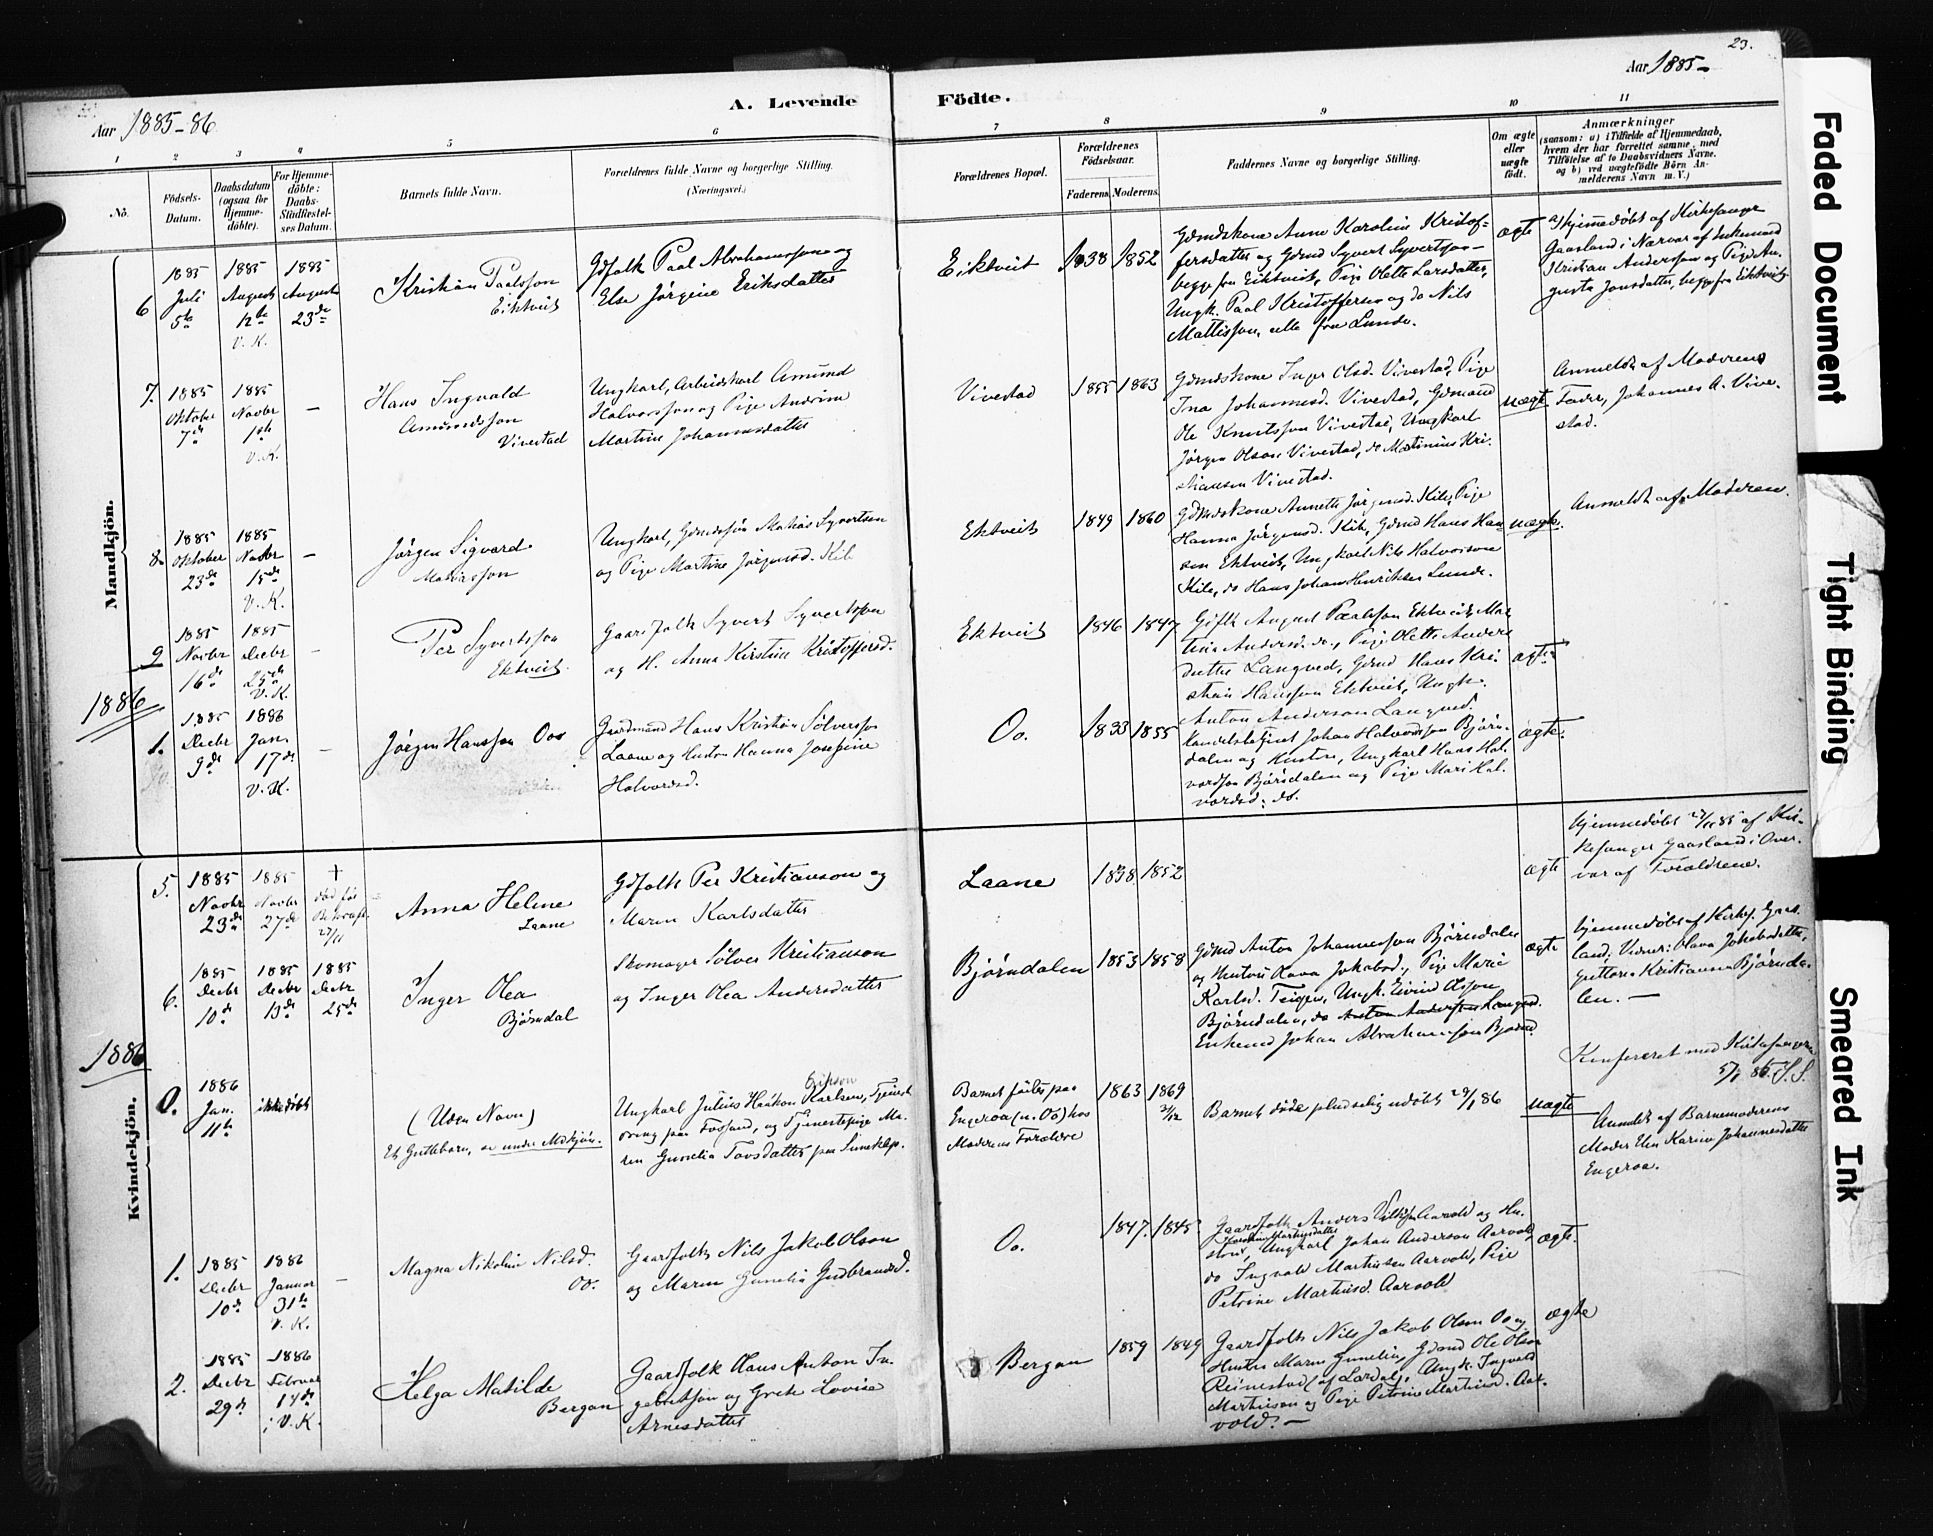 23.
Aar 1885-86
A. Levende
Födte.
Aar 1885-
1 2 3 4 5 6 7 8 9 10 11
No.
Födsels-
Datum.
Daabsdatum
(ogsaa for
Hjemme-
döbte).
For Hjemme-
döbte:
Daabs-
Stadfæstel-
ses Datum.
Barnets fulde Navn.
Forældrenes fulde Navne og borgerlige Stilling.
(Næringsvei.)
Forældrenes Bopæl.
Forældrenes
Födselsaar.
Faderens. Moderens.
Faddernes Navne og borgerlige Stilling.
Om ægte
eller
uægte
födt.
Anmærkninger
(saasom: a) i Tilfælde af Hjemmedaab,
hvem der har forrettet samme, med
Tilföielse af to Daabsvidners Navne.
og b) ved uægtefödte Börn An-
melderens Navn m. V.)
Mandkjön.
6
1885
Juli
5te
1885
August
12te
V. K.
1885
August
23de
Kristian Paalsson
Eiktveit
Gdfolk Paal Abrahamsson og
Else Jørgine Eriksdatter
Eiktveit
1838 1852
Gdmdskone Anne Karoline Kristof-
fersdatter og Gdmd Syvert Syvertson
begge fra Eiktveit, Pige Olette Larsdatter,
Ungk. Paal Kristoffersen og do Nils
Mattisson, alle fra Lunde.
ægte
a) Hjemmedøbt af Kirkesanger
Gaasland i Nærvær af Enkemand
Kristian Anderson og Pige Au-
gusta Jonsdatter, begge fra Eiktveit
7.
1885
Oktober
7de
1885
Novbr
1ste
V. K.
-
Hans Ingvald
Amundsson
Vivestad
Ungkarl, Arbeidskarl Amund
Halvorsson og Pige Andrine
Martine Johannesdatter
Vivestad
1855 1863
Gdmdskone Inger Olsd. Vivestad, Pige
Ina Johannesd. Vivestad, Gdmand
Ole Knutsson Vivestad, Ungkarl
Jørgen Olson Vivestad, do Martinius Kri-
stiansen Vivestad.
uægte
Anmeldt af Moderens
Fader, Johannes A. Vive-
stad.
8.
1885
Oktober
23de
1885
Novbr
15de
V. K.
-
Jørgen Sigvard
Mathiasson
Ungkarl, Gdmdssøn Mathias Syvertsen
og Pige Martine Jørgensd. Kile
Ektveit
1849 1860
Gdmdskone Annette Jørgensd. Kile, Pige
Hanna Jørgensd. Kile, Gdmd Hans Han-
sen Ektveit, Ungkarl Nils Halvorson
Kile, do Hans Johan Henriksen Lunde.
uægte.
Anmeldt af Moderen.
9
1885
Novbr
16de
1885
Decbr
25de
V. K.
-
Per Syvertsson
Ektveit.
Gaardfolk Syvert Syvertson
og H. Anna Kirstine Kristoffersd.
Ektveit
1846 1847
Gifte August Paalsson Ektveit, Mar
tine Andersd. do., Pige Olette Anders
datter Langved, Gdmd Hans Kri-
stian Hansson Ektveit, Ungk.
Anton Anderson Langved.
ægte
1886
1.
1885
Decbr
9de
1886
Jan.
17de
V. K.
-
Jørgen Hansson Oos
Gaardmand Hans Kristian Sölverson
Laane og Hustru Hanna Josefine
Halvorsd.
Oo.
1833 1855
Handelsbetjent Johan Halvordsson Bjørn-
dalen og Hustru, Ungkarl Hans Hal-
vordson Bjørndalen og Pige Mari Hal-
vordsd. do.
ægte.
Kvindekjön.
5.
1885
Novbr
23de
1885
Novbr
27de
†
død før
Bekræft.
27/11
Anna Heline
Laane
Gdfolk Per Kristianson og
Maren Karlsdatter
Laane
1838 1852
ægte
hjemmedøbt 27/11 85 af Kir-
kesanger Gaasland i Over-
vær af Forældrene.
6.
1885
Decbr
10de
1885
Decbr
13de
1885
Decbr
25de
Inger Olea
Bjørndal
Skomager Sölver Kristianson
og Inger Olea Andersdatter
Bjørndalen
1853 1858
Gdmd Anton Johannesson Bjørndalen
og Hustru Lava Jakobsd., Pige Marie
Karlsd. Teigen, Ungk. Eivind Olsson
Bjørndalen, do Anton Andersson Langved.
Enkemd Johan Abrahamsson Bjørnd.
ægte
hjemmedøbt af Kirkes. Gaas-
land, Vidner: Olava Jakobsdatter,
gutten Kristian Bjørnda-
len. -
Konfereret med Kirkesangeren
5/1 86. S. S.
1886
0.
1886
Jan.
11te
ikke døbt
(Uden Navn)
Et Guttebarn, se under Mdkjøn.
Ungkarl Julius Haakon Karlsen, Tjenest
dreng paa Fossand, og Tjenestepige Ma-
ren Gunelia Tovsdatter paa Simeklep.
Barnet fødtes paa
Engeroa (u. Oo) hos
Moderens Forældre
1863 1869
3/12
Barnet døde pludselig udøbt 29/1 86
uægte
Anmeldt af Barnemoderens
Moder Elen Karine Johannesdatter
Engeroa.
1.
1885
Decbr
10de
1886
Januar
31te
V. K.
-
Magna Nikoline Nilsd.
Oo.
Gaardfolk Nils Jakob Olson
og Maren Gunelia Gudbrandsd.
Oo.
1847. 1845.
Gaardfolk Anders Aarvold og Hu-
stru, Ungkarl Johan Anderson Aarvold,
do Ingvald Martinsen Aarvold, Pige
Petrine Martinsd. Aarvold
ægte.
2.
1885
Decbr
29de
1886
Februar
14de
i V. K.
Helga Matilde
Bergan
Gaardfolk Hans Anton In-
gebretson og Grete Lovise
Arnesdatter
Bergan
1859 1849
Gaardfolk Nils Jakob Olson Oo og
Hustru Maren Gunelia, Gdmd Ole Olson
Reinestad (af Lardal), Ungk. Ingvald
Martinson og Pige Petrine Martinsd. Aar-
vold. -
ægte
Faded Document
Tight Binding
Smeared Ink